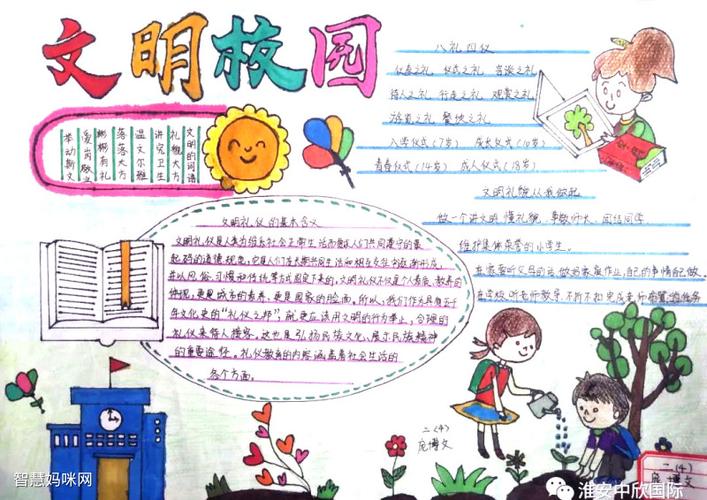 文明校园
文明的词语
礼雅大方
讲究卫生
温文尔雅
落落大方
彬彬有礼
爱岗敬业
举动斯文
八礼四仪
仪表之礼 仪式之礼 言谈之礼
待人之礼 行走之礼 观赏之礼
游览之礼 餐饮之礼
入学仪式(7岁) 成长仪式(10岁)
青春仪式(14岁) 成人仪式(18岁)
文明礼貌从我做起
做一个讲文明、懂礼貌、尊敬师长、团结同学
维护集体荣誉的小学生。
文明礼仪的基本含义
文明礼仪是人类为维系社会正常生活而要求人们共同遵守的最
起码的道德规范,它是人们在长期共同生活和相互交往中逐渐形成,
并以风俗、习惯和传统等方式固定下来的,文明礼仪不仅是个人素质、教养的
体现,更是城市的素养,更是国家的脸面,所以,我们作为具有五千
年文化史的“礼仪之邦”,更应该用文明的行为举止,合理的
礼仪来待人接客。这也是弘扬民族文化、展示民族精神
的重要途径。礼仪教育的内容涵盖着社会生活的
各个方面。
二(4)
庞博文
智慧妈咪网
淮安中欣国际